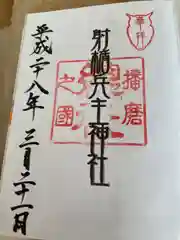 奉拝
播磨
射楯兵主神社
之國
平成二十八年 三月二十一日